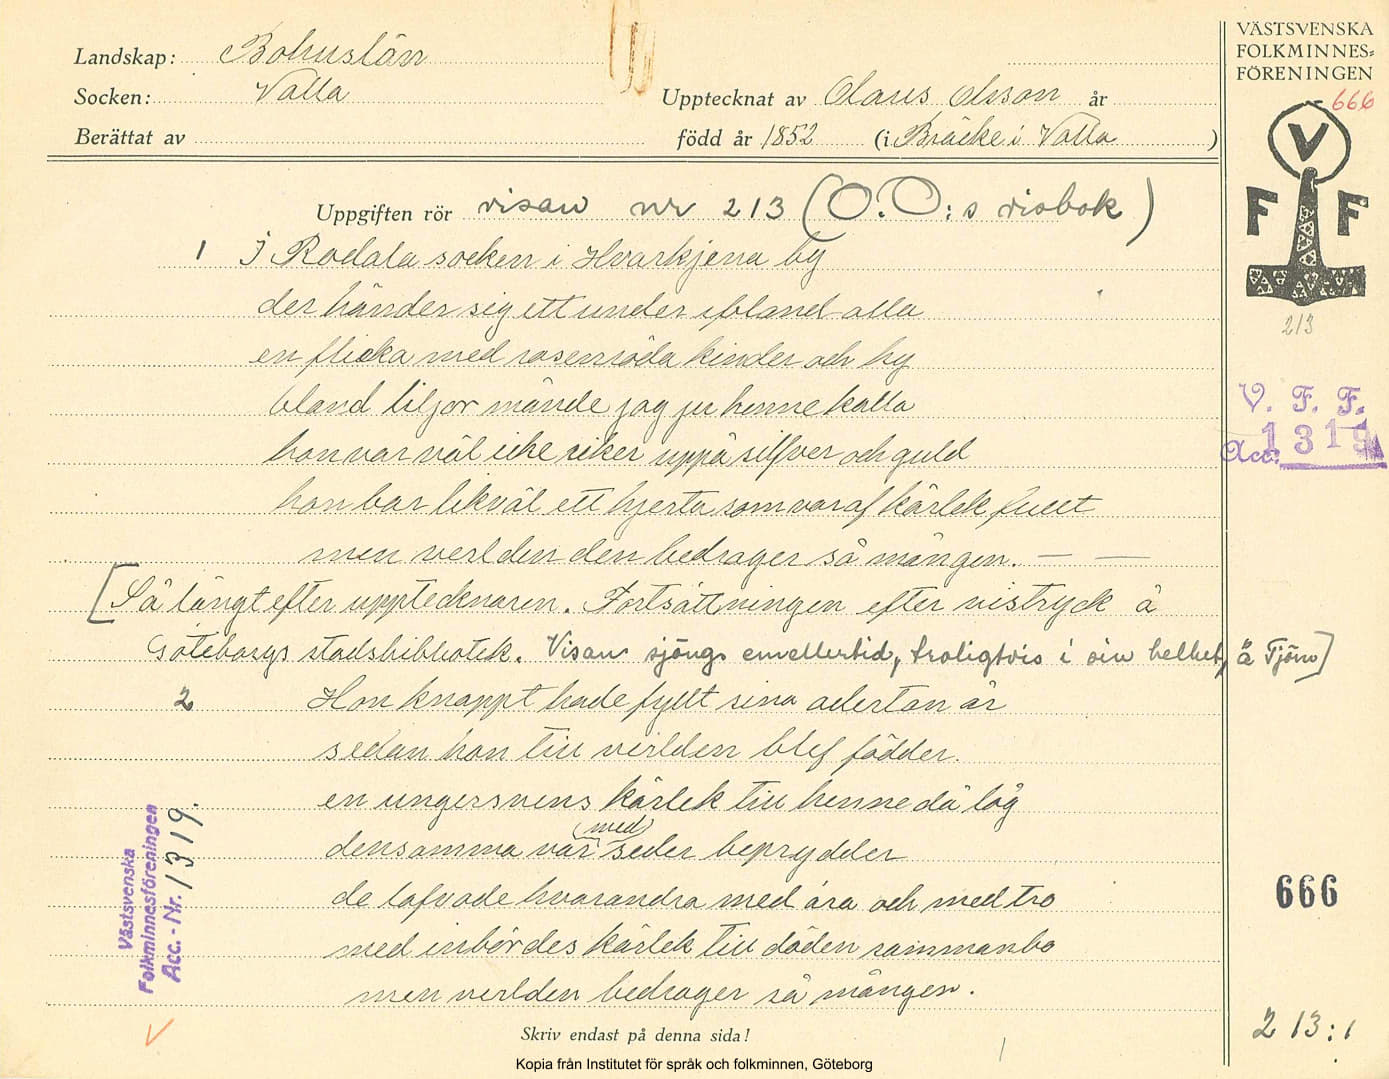 Landskap: Bohuslän
Socken: Valla
Upptecknat av Olaus Olsson år
Berättat av
född år 1852 (i Bräcke i Valla)
VÄSTSVENSKA
FOLKMINNES=
FÖRENINGEN
666
V
F F
213
V. F. F.
Acc. 1319
Uppgiften rör visan nr 213 (O.O:s visbok)
1 I Rodala socken i Hvarkjena by
der händer sig ett under ibland alla
en flicka med rosenröda kinder och hy
bland liljor månde jag ju henne kalla
hon var väl icke riker uppå silfver och guld
hon bar likväl ett hjerta som var af kärlek fullt
men verlden den bedrager så mången. — —
[Så långt efter upptecknaren. Fortsättningen efter vistryck å
Göteborgs stadsbibliotek. Visan sjöngs emellertid, troligtvis i sin helhet, å Tjörn]
2 Hon knappt hade fyllt sina aderton år
sedan hon till verlden blef födder.
en ungersvens kärlek till henne då låg
densamma var (med) seder beprydder
de lofvade hvarandra med ära och med tro
med inbördes kärlek till döden sammanbo
men verlden bedrager så mången.
Västsvenska
Folkminnesföreningen
Acc. - Nr. 1319.
666
213:1
Skriv endast på denna sida!
Kopia från Institutet för språk och folkminnen, Göteborg